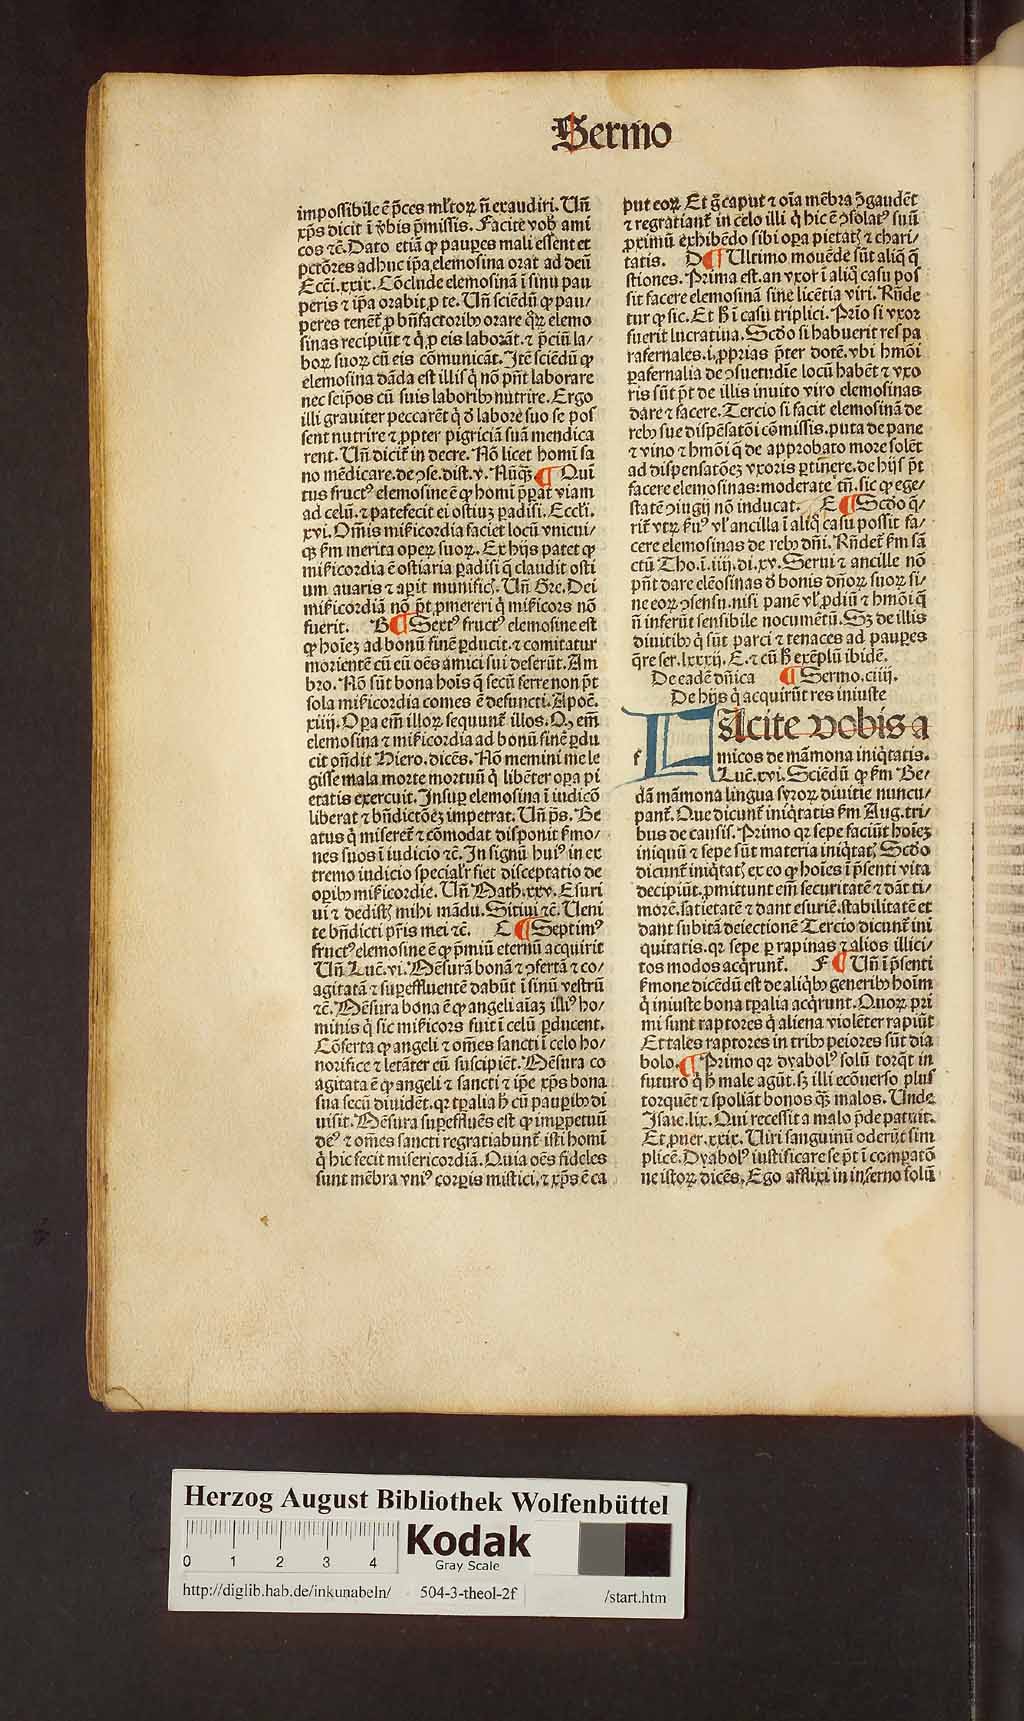 Sermo
impossibile ē p̄ces ml̄toꝝ n̄ exaudiri. Un̄
xp̄s dicit ī v̄bis p̄missis. Facite vob̄ ami
cos ⁊c̄. Dato etiā ꝙ pauꝑes mali essent et
pctōres adhuc ip̄a elemosina orat ad deū
Ecci. xxix. Cōclude elemosinā ī sinu pau
peris ⁊ ip̄a orabit ꝓ te. Un̄ sciēdū ꝙ pau/
peres tenent̄ ꝓ bn̄factorib⁹ orare qꝝ elemo
sinas recipiūt ⁊ q̇ ꝓ eis laborāt. ⁊ p̄ciū la/
boꝝ suoꝝ cū eis cōmunicāt. Itē sciēdū ꝙ
elemosina dāda est illis q̇ nō pn̄t laborare
nec seip̄os cū suis laborib⁹ nutrire. Ergo
illi grauiter peccarēt q̇ d̄ labore suo se pos
sent nutrire ⁊ ꝓpter pigriciā suā mendica
rent. Un̄ dicit̄ in decre. Nō licet homī sa
no mēdicare. de ꝯse. dist. v. Nūq̄ꝫ ¶ Quī
tus fruct⁹ elemosine ē ꝙ homī p̄ꝑat viam
ad celū. ⁊ patefecit ei ostiuꝫ ꝑadisi. Eccl̄i.
xvi. Om̄is mīcordia faciet locū vnicui/
qꝫ ẜm merita oꝑeꝝ suoꝝ. Ex hijs patet ꝙ
mīcordia ē ostiaria ꝑadisi q̄ claudit osti
um auaris ⁊ aꝑit munificꝭ. Un̄ Gre. Dei
mīcordiā nō pōt ꝓmereri q̇ mīcors nō
fuerit. B ¶ Sext⁹ fruct⁹ elemosine est
ꝙ hoīeꝫ ad bonū finē ꝑducit. ⁊ comitatur
morientē cū eū oēs amici sui deserūt. Am
bro. Nō sūt bona hoīs q̄ secū ferre non pōt
sola mīcordia comes ē defuncti. Apoc̄.
xiiij. Oꝑa em̄ illoꝝ sequunt̄ illos. Q em̄
elemosina ⁊ mīcordia ad bonū finē ꝑdu
cit on̄dit Hiero. dicēs. Nō memini me le
gisse mala morte mortuū q̇ libēter oꝑa pi
etatis exercuit. Insuꝑ elemosina ī iudicō
liberat ⁊ bn̄dictōeꝫ impetrat. Un̄ ps̄. Be
atus q̇ miseret̄ ⁊ cōmodat disponit ẜmo/
nes suos ī iudicio ⁊c̄. In signū hui⁹ in ex
tremo iudicio special̄r fiet disceptatio de
oꝑib⁹ mīcordie. Un̄ Math̄. xxv. Esuri
ui ⁊ dedistꝭ mihi mādu. Sitiui ⁊c̄. Ueni
te bn̄dicti pr̄is mei ⁊c̄. C ¶ Septim⁹
fruct⁹ elemosine ē ꝙ p̄miū eternū acquirit
Un̄ Luc̄. vi. Mēsurā bonā ⁊ ꝯfertā ⁊ co/
agitatā ⁊ suꝑeffluentē dabūt ī sinū vestrū
⁊c̄. Mēsura bona ē ꝙ angeli aīaꝫ illi⁹ ho/
minis q̇ sic mīcors fuit ī celū ꝑducent.
Cōferta ꝙ angeli ⁊ om̄es sancti ī celo ho/
norifice ⁊ letāter eū suscipiēt. Mēsura co
agitata ē ꝙ angeli ⁊ sancti ⁊ ip̄e xp̄s bona
sua secū diuidēt. qꝛ tꝑalia h̄ cū pauꝑib⁹ di
uisit. Mēsura suꝑeffluēs est ꝙ imꝑpetuū
de⁹ ⁊ om̄es sancti regratiabunt̄ isti homī
q̇ hic fecit misericordiā. Quia oēs fideles
sunt mēbra vni⁹ corꝑis mistici, ⁊ xp̄s ē ca
put eoꝝ. Et g̊ caput ⁊ oīa mēbra ꝯgaudēt
⁊ regratiant̄ in celo illi q̇ hic ē ꝯsolat⁹ suū
ꝓximū exhibēdo sibi oꝑa pietatꝭ ⁊ chari/
tatis. D ¶ Ultimo mouēde sūt aliq̄ q̄
stiones. Prima est. an vxor ī aliq̄ casu pos
sit facere elemosinā sine licētia viri. Rn̄de
tur ꝙ sic. Et h̄ ī casu triplici. Prīo si vxor
fuerit lucratiua. Scd̄o si habuerit res pa
rafernales. i. ꝓprias p̄ter dotē. vbi hmōi
ꝑafernalia de ꝯsuetudīe locū habēt ⁊ vxo
ris sūt pōt de illis inuito viro elemosinas
dare ⁊ facere. Tercio si facit elemosinā de
reb⁹ sue dispēsatōi cōmissis. puta de pane
⁊ vino ⁊ hmōi q̄ de approbato more solēt
ad dispensatōeꝫ vxoris ꝑtinere. de hijs pōt
facere elemosinas: moderate tn̄. sic ꝙ ege/
statē ꝯiugij nō inducat. E ¶ Scd̄o q̄/
rit̄ vtꝝ ẜu⁹ vl̓ ancilla ī aliq̄ casu possit fa/
cere elemosinas de reb⁹ dn̄i. Rn̄det ẜm sā
ctū Tho. ī. iiij. di. xv. Serui ⁊ ancille nō
pn̄t dare elēosinas d̄ bonis dn̄oꝝ suoꝝ si/
ne eoꝝ ꝯsensu. nisi panē vl̓ ꝓdiū ⁊ hmōi q̄
n̄ inferūt sensibile nocumētū. Sꝫ de illis
diuitib⁹ q̇ sūt parci ⁊ tenaces ad pauꝑes
q̄re ser. lxxxij. E. ⁊ cū h̄ exēplū ibidē.
De eadē dn̄ica ¶ Sermo. ciiij.
De hijs q̇ acquirūt res iniuste
FAcite vobis a
micos de māmona iniq̇tatis.
Luc̄. xvi. Sciēdū ꝙ ẜm Be/
dā māmona lingua syroꝝ diuitie nuncu/
pant̄. Que dicunt̄ iniq̇tatis ẜm Aug. tri/
bus de causis. Primo qꝛ sepe faciūt hoīeꝫ
iniquū ⁊ sepe sūt materia iniq̇tatꝭ Scd̄o
dicunt̄ iniq̇tatꝭ ex eo ꝙ hoīes ī p̄senti vita
decipiūt. ꝓmittunt em̄ securitatē ⁊ dāt ti/
morē. satietatē ⁊ dant esuriē. stabilitatē et
dant subitā deiectionē Tercio dicunt̄ ini
quitatis. qꝛ sepe ꝑ rapinas ⁊ alios illici/
tos modos acq̇runt̄. F ¶ Un̄ ī p̄senti
ẜmone dicēdū est de aliq̇b⁹ generib⁹ hoīm
q̇ iniuste bona tꝑalia acq̇runt. Quoꝝ pri
mi sunt raptores q̇ aliena violēter rapiūt
Et tales raptores in trib⁹ peiores sūt dia
bolo. ¶ Primo qꝛ dyabol⁹ solū torq̄t in
futuro q̇ h̄ male agūt. sꝫ illi ecōuerso plus
torquēt ⁊ spoliāt bonos q̄ꝫ malos. Unde
Isaie. lix. Qui recessit a malo p̄de patuit.
Et ꝓuer. xxix. Uiri sanguinū oderūt sim
plicē. Dyabol⁹ iustificare se pōt ī comꝑatō
ne istoꝝ dicēs, Ego afflixi in inferno solū
Herzog August Bibliothek Wolfenbüttel
0 1 2 3 4
Kodak
Gray Scale
http://diglib.hab.de/inkunabeln/ 504-3-theol-2f /start.htm